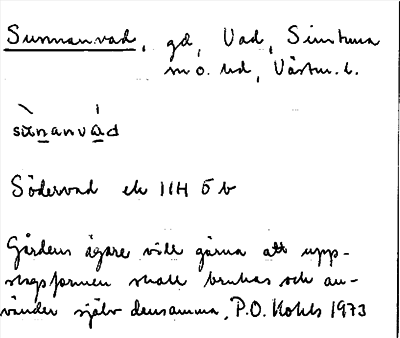 Sunnanvad, gd, Vad, Simtuna
m o. hd, Västm. l.
sùnanvád
Södervad ek 11H 5 b
Gårdens ägare vill gärna att upp-
slagsformen skall brukas och an-
vänder själv densamma, P.O. Kohls 1973